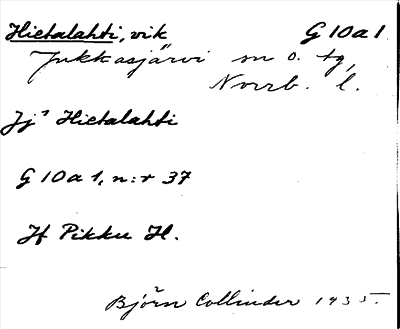 Hietalahti, vik G 10 a 1
Jukkasjärvi sn o. tg,
Norrb. l.
Jj⁹ Hietalahti
G 10 a 1, n:r 37
Jf Pikku H.
Björn Collinder 1935.